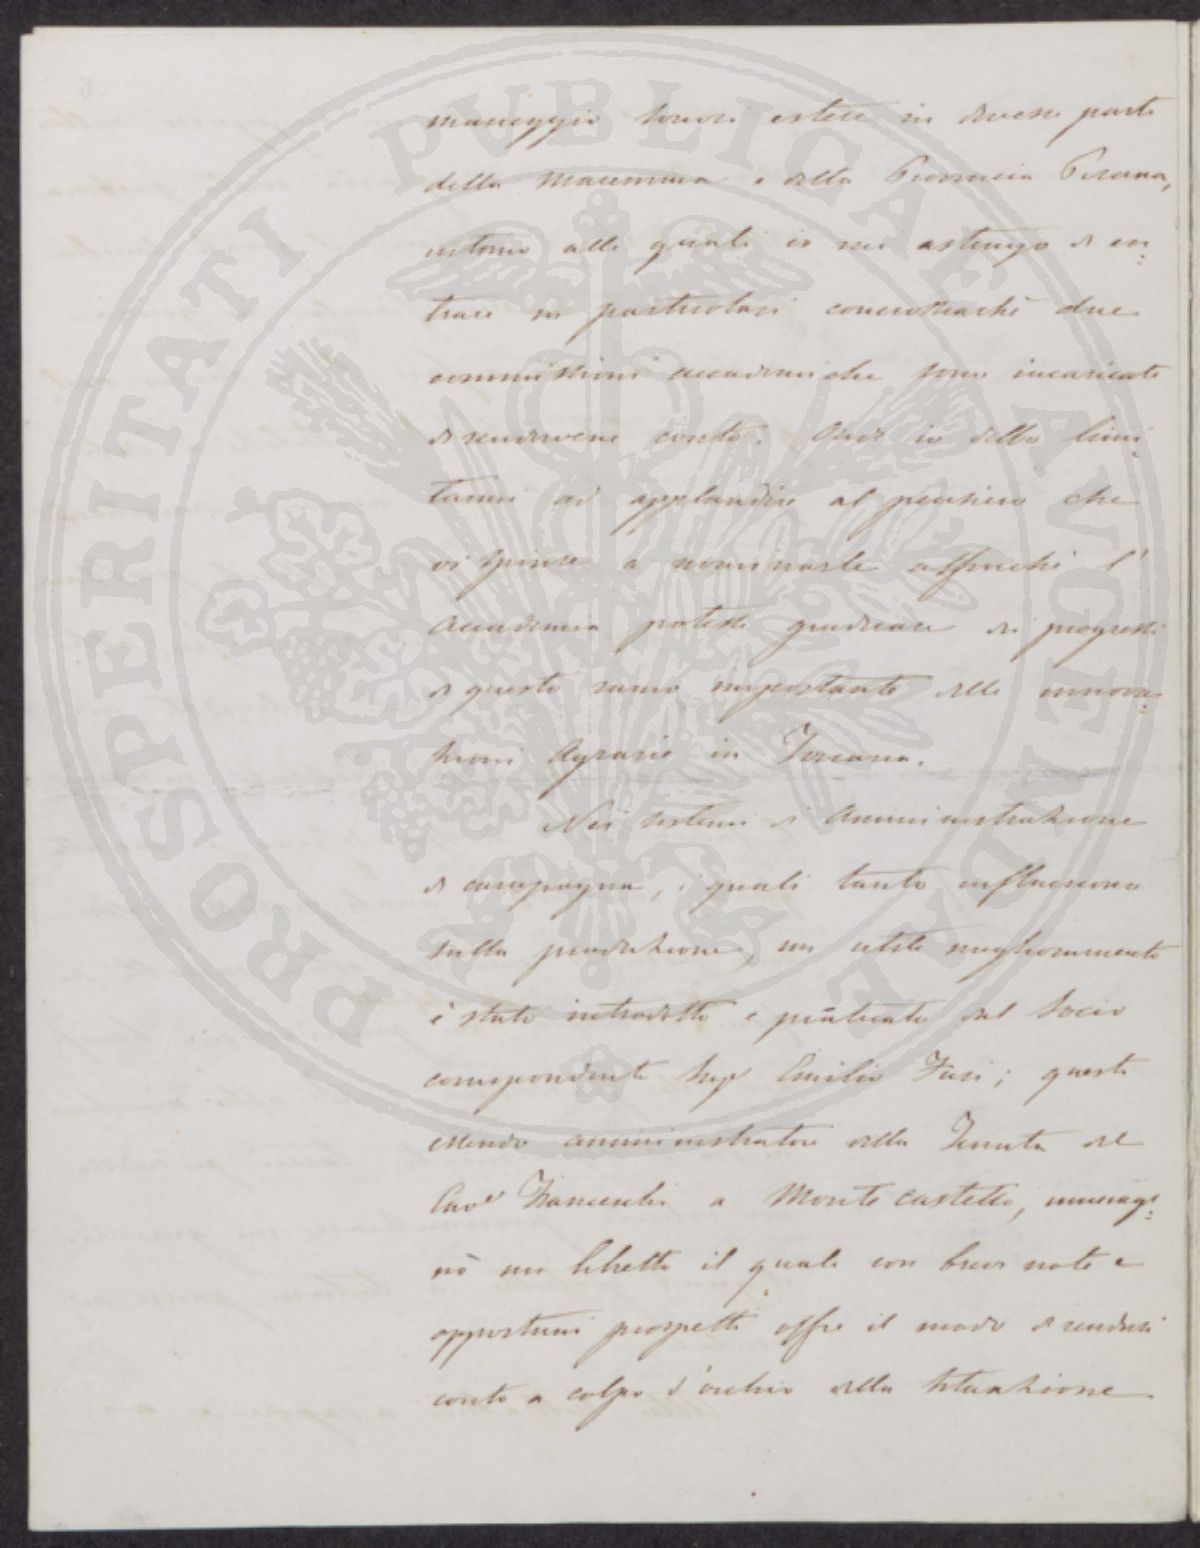 maneggio sonosi estese in diverse parti
della Maremma e della Provincia Pisana,
intorno alle quali io mi astengo di en:
trare in particolari conciossiachè due
commissioni accademiche sono incaricate
di rendervene conto. Onde io debbo limi:
tarmi ad applaudire al pensiero che
vi spinse a nominarle affinchè l'
Accademia potesse giudicare dei progressi
di questo ramo importante delle innova:
zioni Agrarie in Toscana.
Nei sistemi di Amministrazione
di campagna, i quali tanto influiscono
sulla produzione, un utile miglioramento
è stato introdotto e praticato dal Socio
corrispondente Sigr Emilio ; questi
essendo amministratore della Tenuta del
Cave Franceschi a Monte castello, immagi:
nò un libretto il quale con brevi note e
opportuni prospetti offre il modo di rendersi
conto a colpo d'occhio della Situazione
PROSPERITATI PUBLICAE AVGENDAE